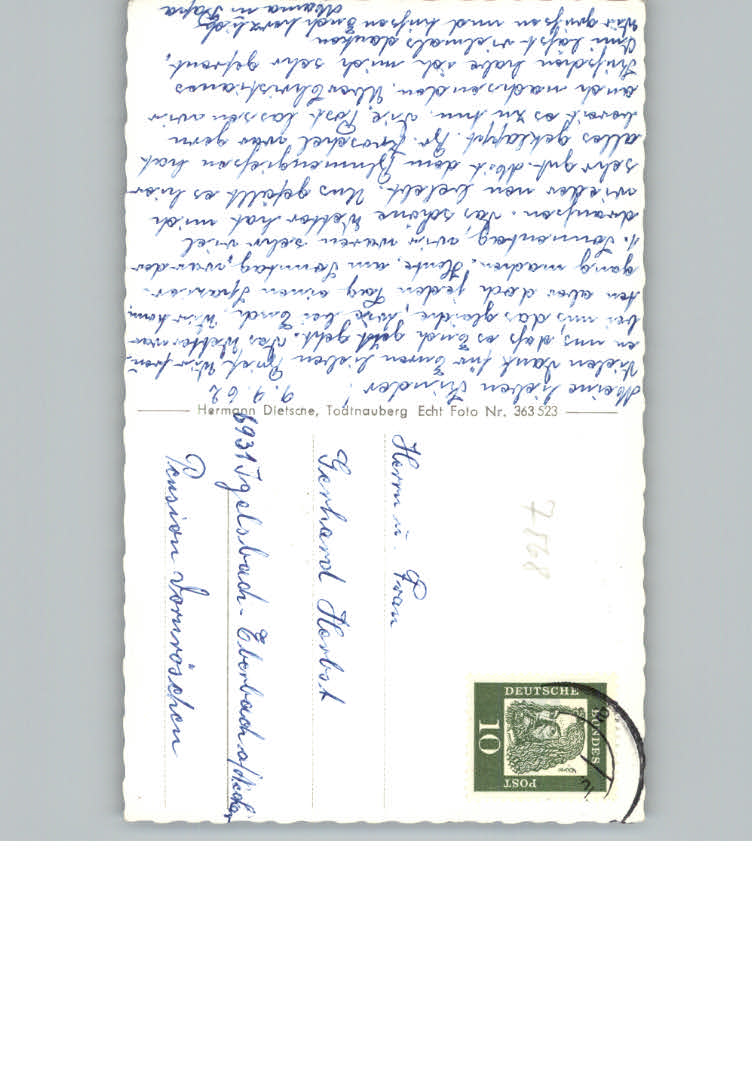 9.9.62
Meine lieben Kinder!
Vielen Dank für Euren lieben Brief. Wir freu-
en uns, daß es Euch gut geht. Das Wetter war
bei uns das gleiche, wie bei Euch. Wir konn-
ten aber doch jeden Tag einen Spazier-
gang machen. Heute, am Sonntag, war der
1. Sonnentag, wir waren sehr viel
draußen. Das schöne Wetter hat mich
wieder neu belebt. Uns gefällt es hier
sehr gut. Mit dem Blumengießen hat
alles geklappt. Fr. Kroschel war gern
bereit es zu tun. Die Post lassen wir
auch nachsenden. Über Christianes
habe ich mich sehr gefreut,
Omi läßt vielmals danken
Wir grüßen und küssen Euch herzlichst
Mama u. Papa
Hermann Dietsche, Todtnauberg Echt Foto Nr. 363 523
Herrn u. Frau
Gerhard Herbst
6931 Igelsbach-Eberbach a/Neckar
Pension Dornröschen
7868
DEUTSCHE
BUNDES
POST
10